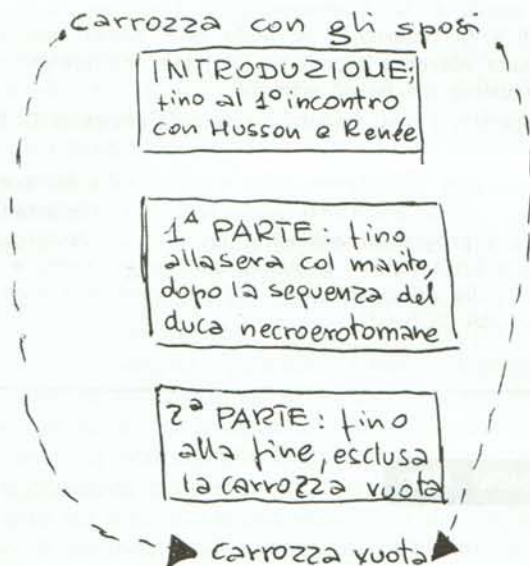 carrozza con gli sposi
INTRODUZIONE;
fino al 1º incontro
con Husson e Renée
1ª PARTE: fino
alla sera col marito,
dopo la sequenza del
duca necroerotomane
2ª PARTE: fino
alla fine, esclusa
la carrozza vuota
carrozza vuota